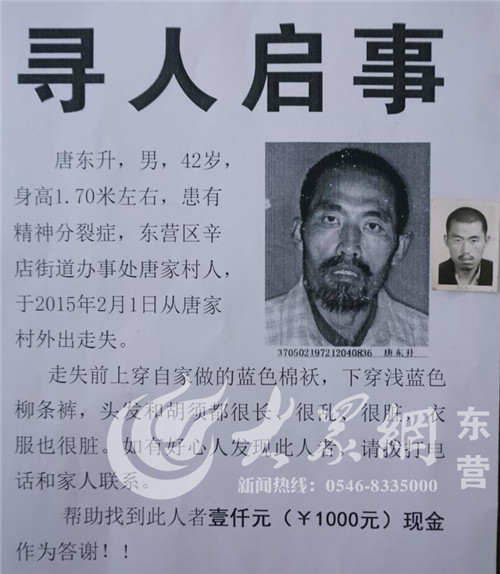 寻人启事
唐东升，男，42岁，
身高1.70米左右，患有
精神分裂症，东营区辛
店街道办事处唐家村人，
于2015年2月1日从唐家
村外出走失。
370502197212040836 唐东升
走失前上穿自家做的蓝色棉袄，下穿浅蓝色
柳条裤，头发和胡须都很长、很乱、很脏，衣
服也很脏。如有好心人发现此人者，请拨打电
话和家人联系。
大众网
东营
新闻热线：0546-8335000
帮助找到此人者壹仟元（￥1000元）现金
作为答谢！！